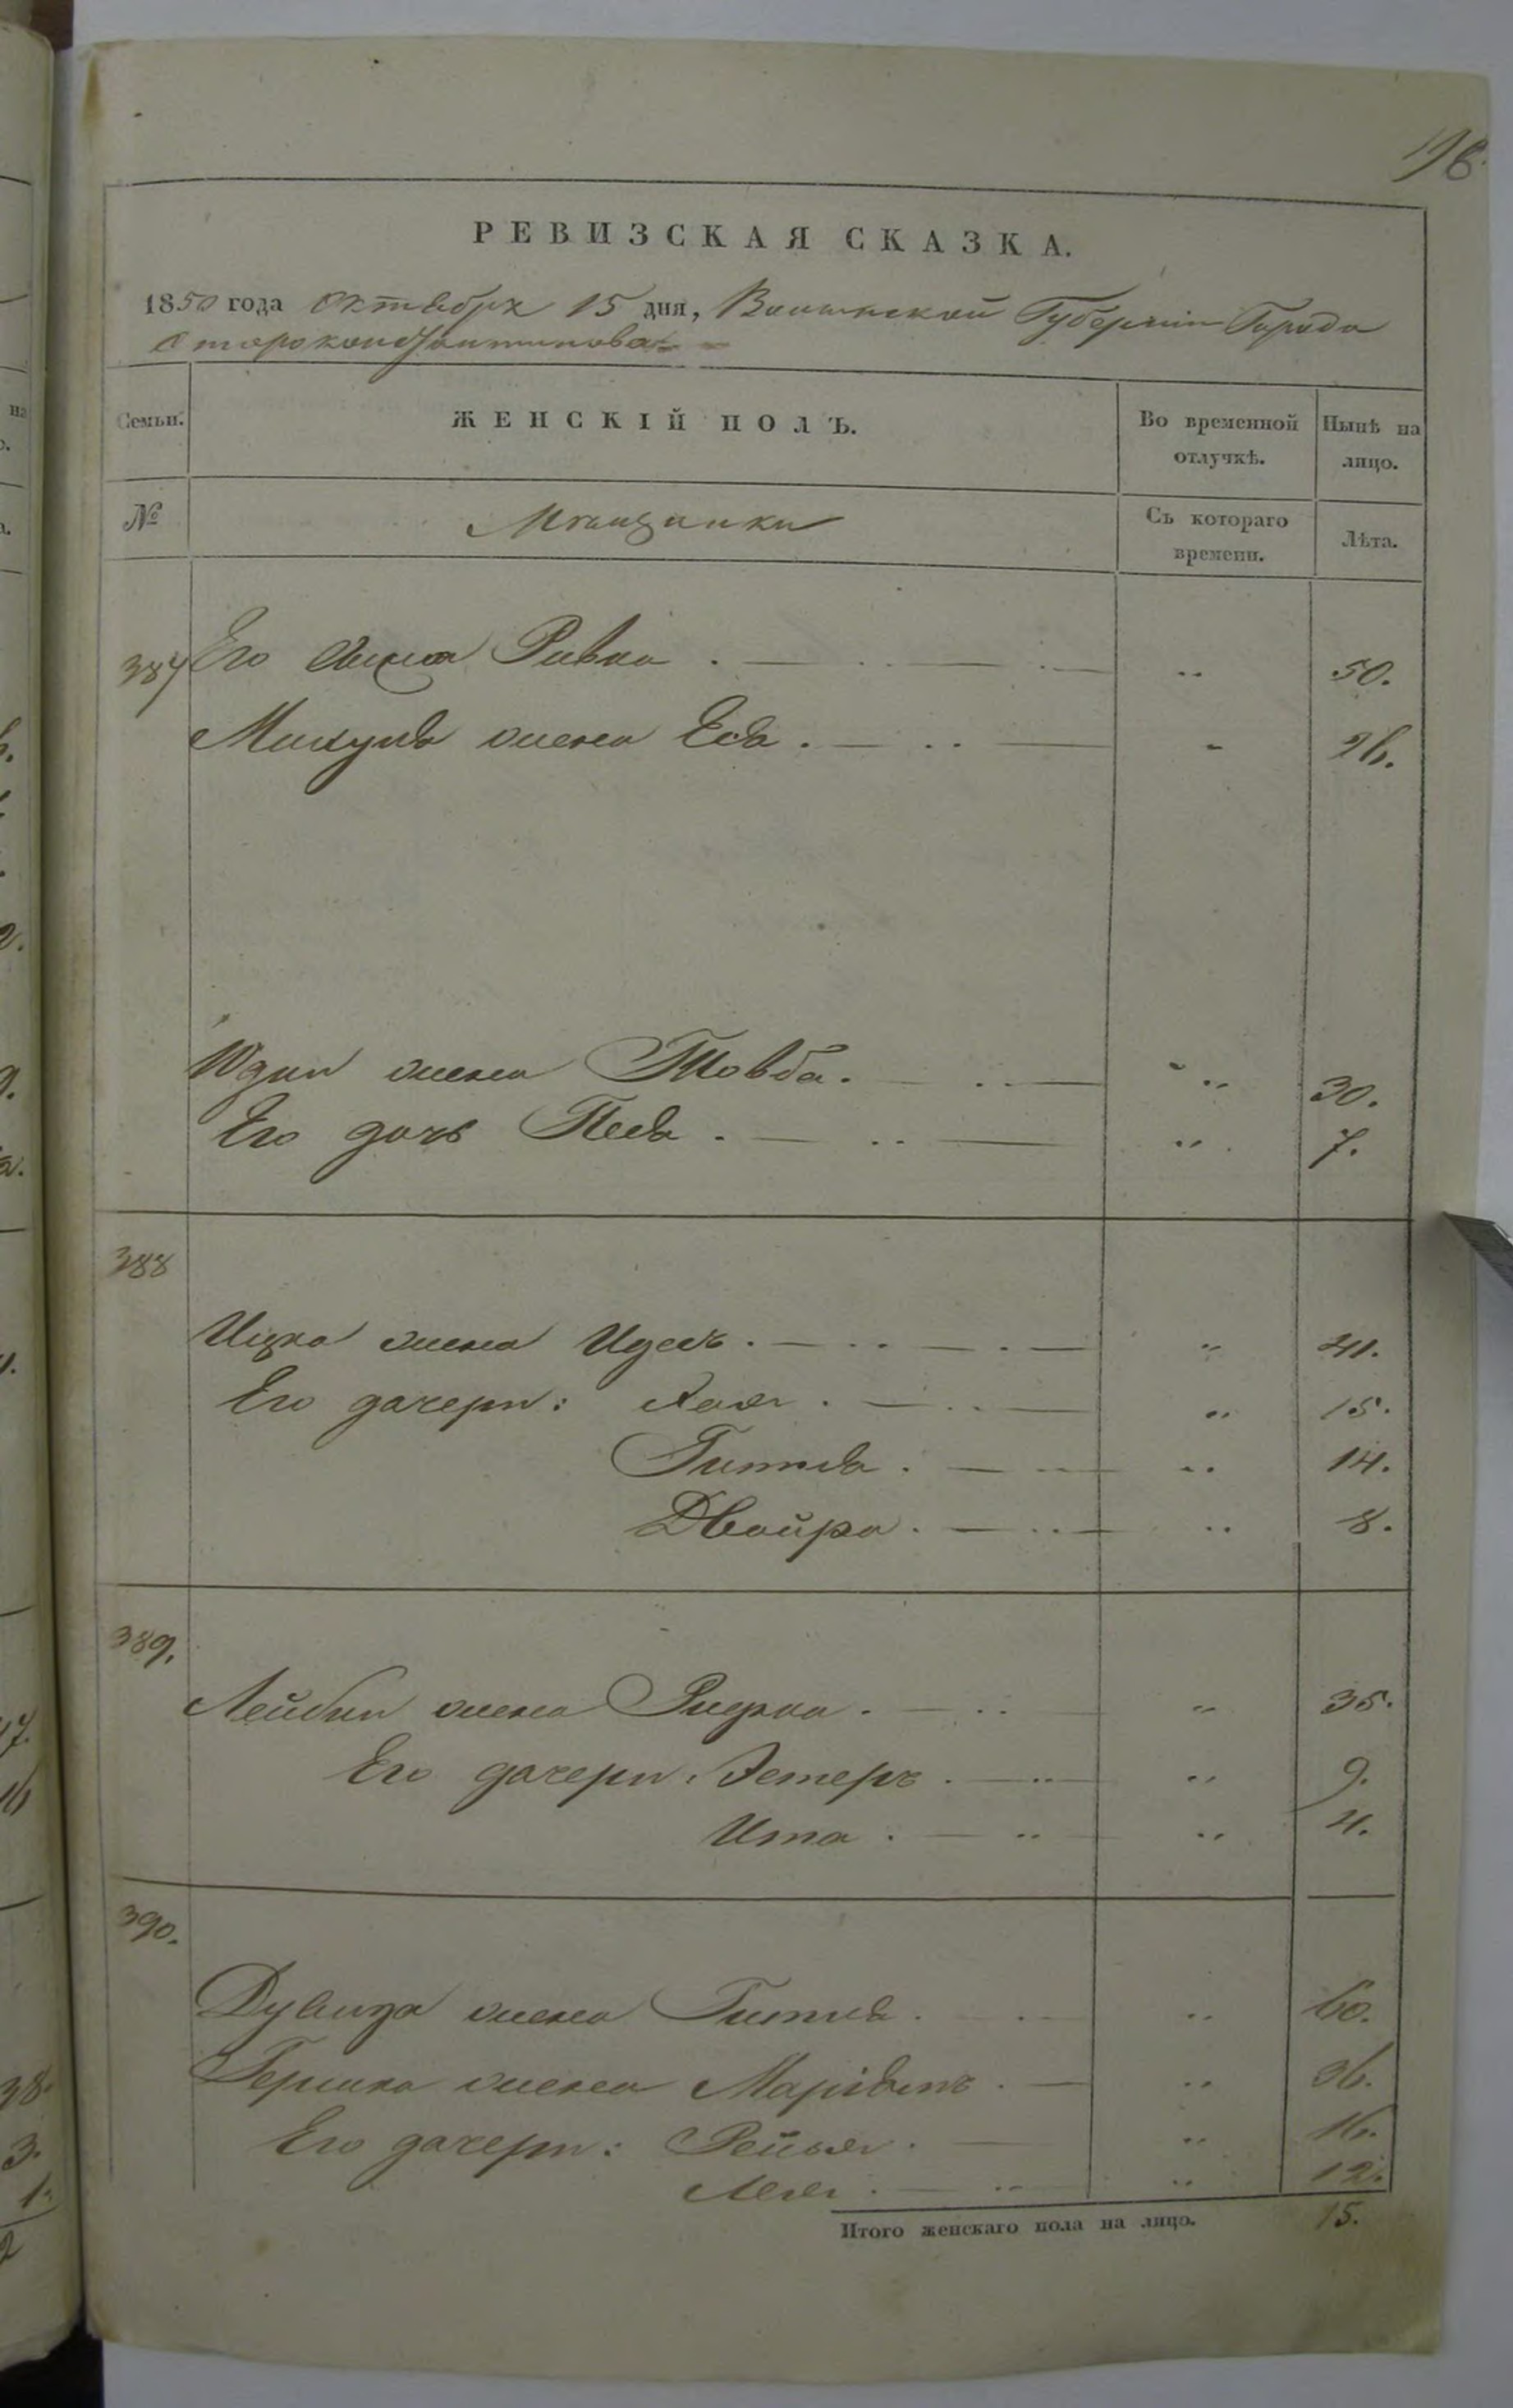 РЕВИЗСКАЯ СКАЗКА.
1850 года Октября 15 дня, Волынской Губернiи Города
Староконстантинова
Семьи. ЖЕНСКІЙ ПОЛЪ. Во временной отлучкѣ. Нынѣ на лицо.
№ Мѣщанки Съ котораго времени. Лѣта.
387 Его жена Ривка 50.
жена Еса 26.
Юдки жена Товба. 30.
Его дочь Песя 7.
388
Ицка жена Идесъ. 41.
Его дочери: Хая. 15.
Гитля. 14.
Двойра. 8.
389.
Лейбы жена Рифка. 35.
Его дочери: Эстеръ. 9.
Ита. 4.
390.
Дувида жена Гитля. 60.
Гершка жена 36.
Его дочери: Рейзя. 16.
Лея. 12.
Итого женскаго пола на лицо. 15.